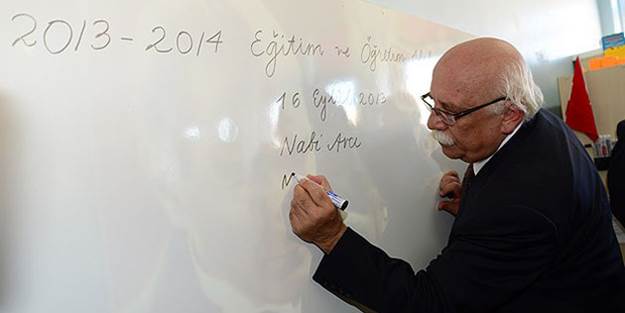 2013-2014 Eğitim ve Öğretim
16 Eylül 2013
Nabi Avcı
M